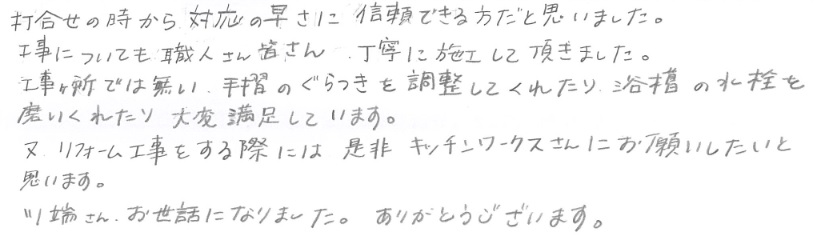 打合せの時から対応の早さに信頼できる方だと思いました。
工事についても職人さん皆さん、丁寧に施工して頂きました。
工事ヶ所では無い、手摺のぐらつきを調整してくれたり、浴槽の水栓を
磨いくれたり大変満足しています。
又、リフォーム工事をする際には是非キッチンワークスさんにお願いしたいと
思います。
川端さん、お世話になりました。ありがとうございます。